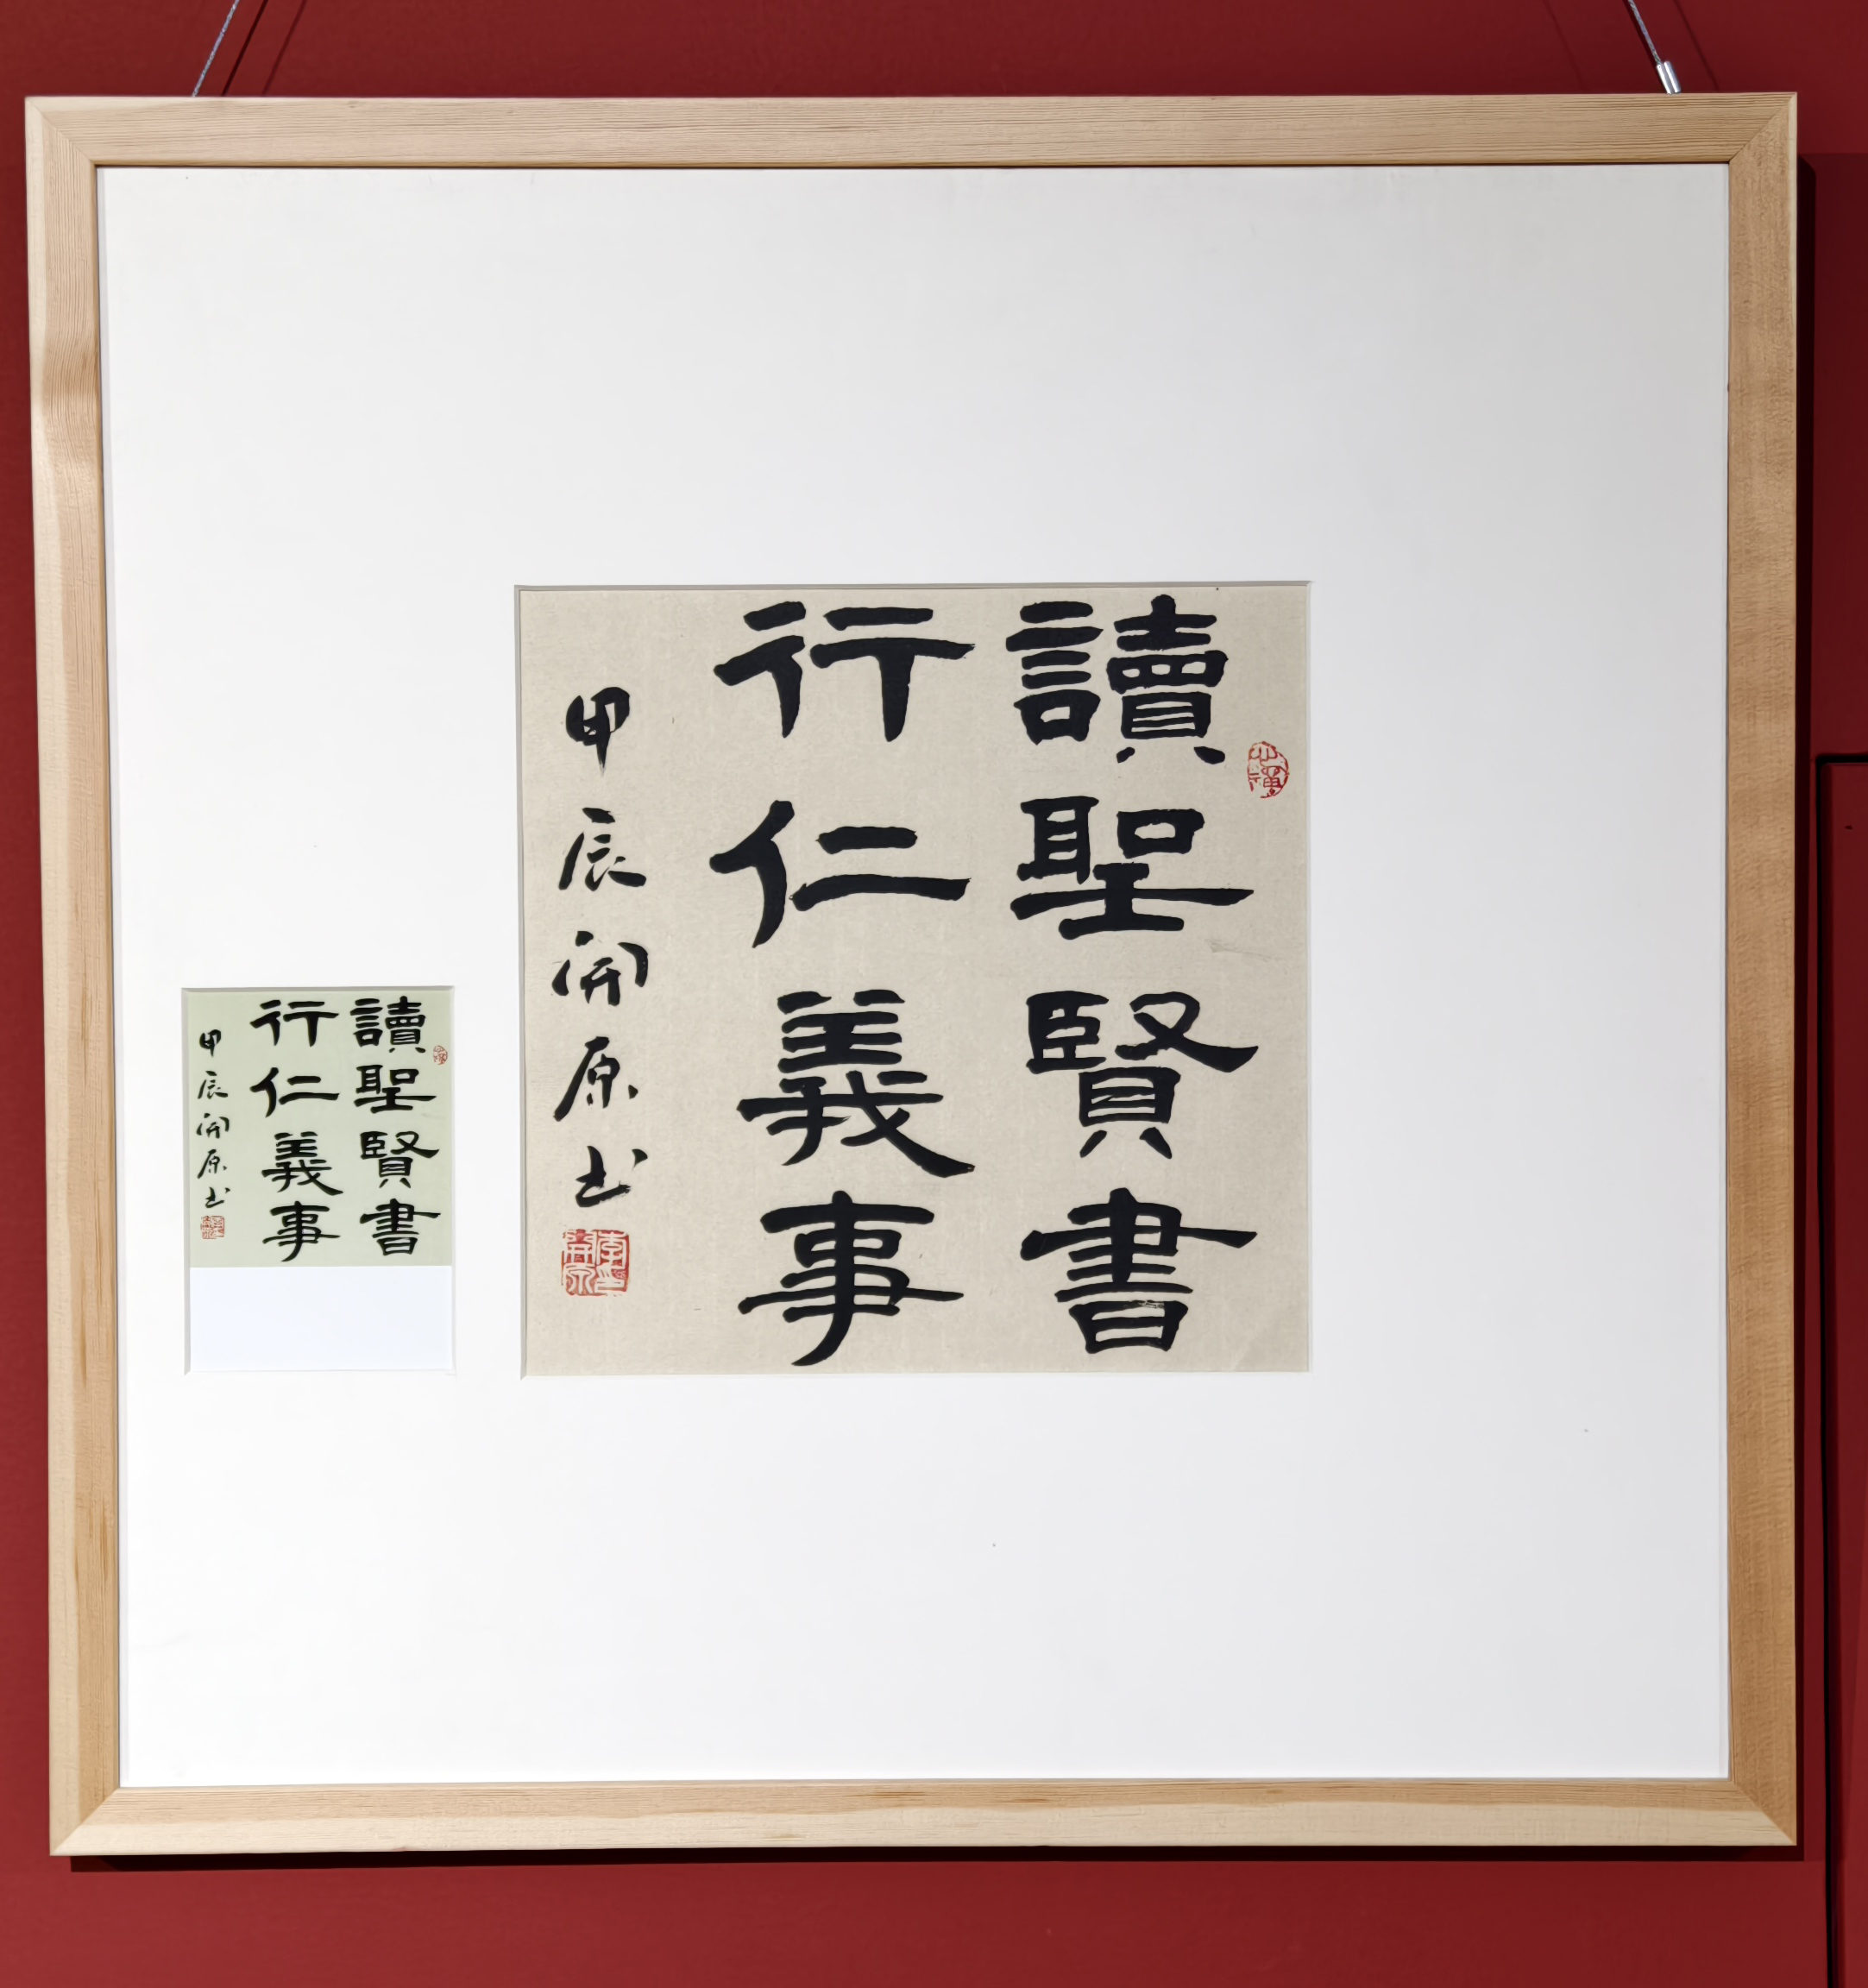 讀聖賢書
行仁義事
甲辰開原书
讀聖賢書
行仁義事
甲辰開原书